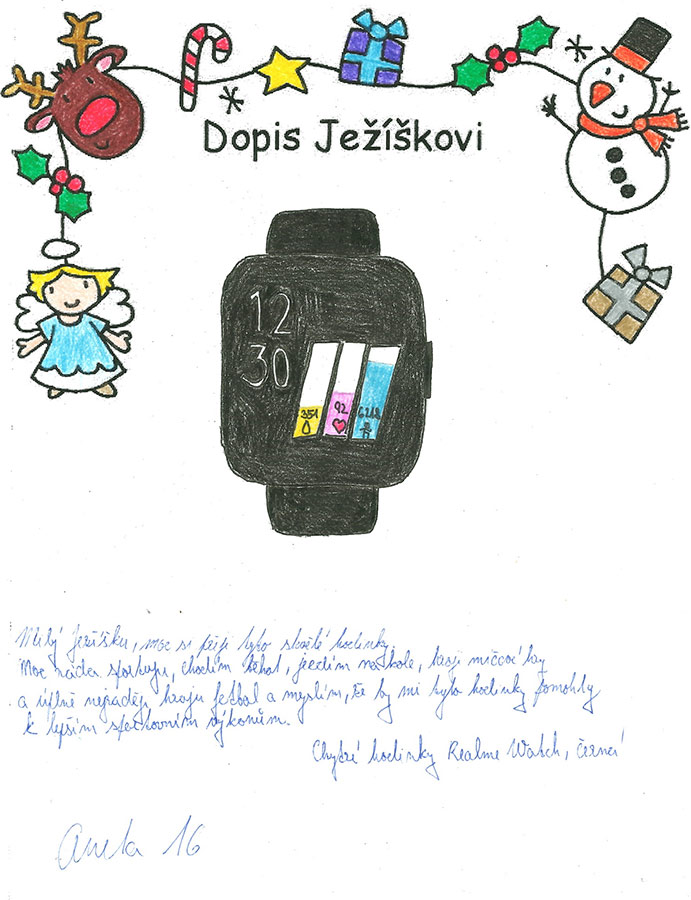 Dopis Ježíškovi
12
30
351
92
Milý Ježíšku, moc si přeji tyto skvělé hodinky.
Moc ráda sportuju, chodím běhat, jezdím na kole, hraji míčové hry
a úplně nejraději hraju fotbal a myslím, že by mi tyto hodinky pomohly
k lepším sportovním výkonům.
Chytré hodinky Realme Watch, černé
Aneta 16